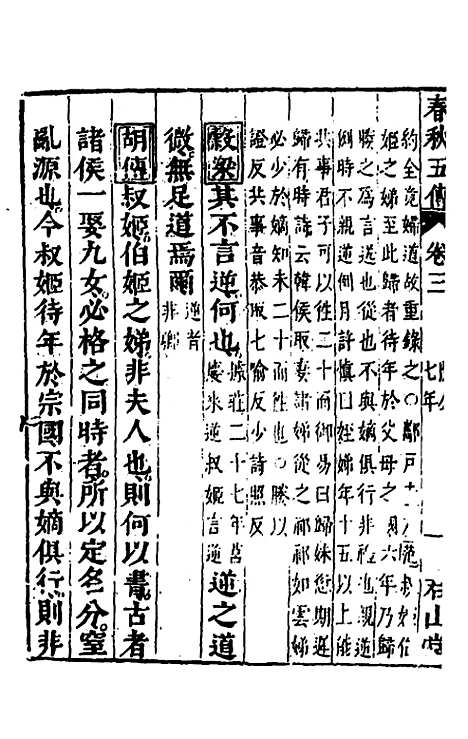 春秋五傳 卷三 七年 石山堂
約全竟婦道故重錄之○
姬之娣至此歸者待年於父母之國六年乃歸
媵之為言送也從也不與嫡俱行非禮也親迎
例時不親迎例月許慎曰姪娣年十五以上能
共事君子可以徃二十而御易曰歸妹愆期遲
歸有時詩云韓侯取妻諸娣從之祁祁如雲娣
必少於嫡知未二十而徃也○媵以
證反共事音恭取七喻反少詩照反
穀梁其不言逆何也據莊二十七年莒慶來逆叔姬言逆逆之道
微無足道焉爾逆者非卿
胡傳叔姬伯姬之娣非夫人也則何以書古者
諸侯一娶九女必格之同時者所以定名分窒
亂源也今叔姬待年於宗國不與嫡俱行則非